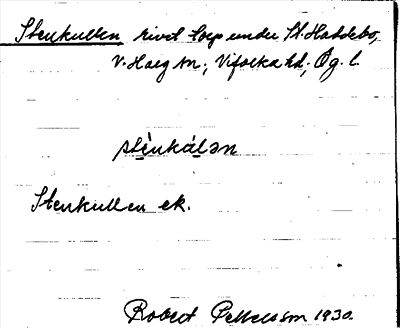 Stenkullen rivet torp under St. Habblebo,
V. Harg sn; Vifolka hd, Ög. l.
stènkálən
Stenkullen ek.
Robert Pettersson 1930.